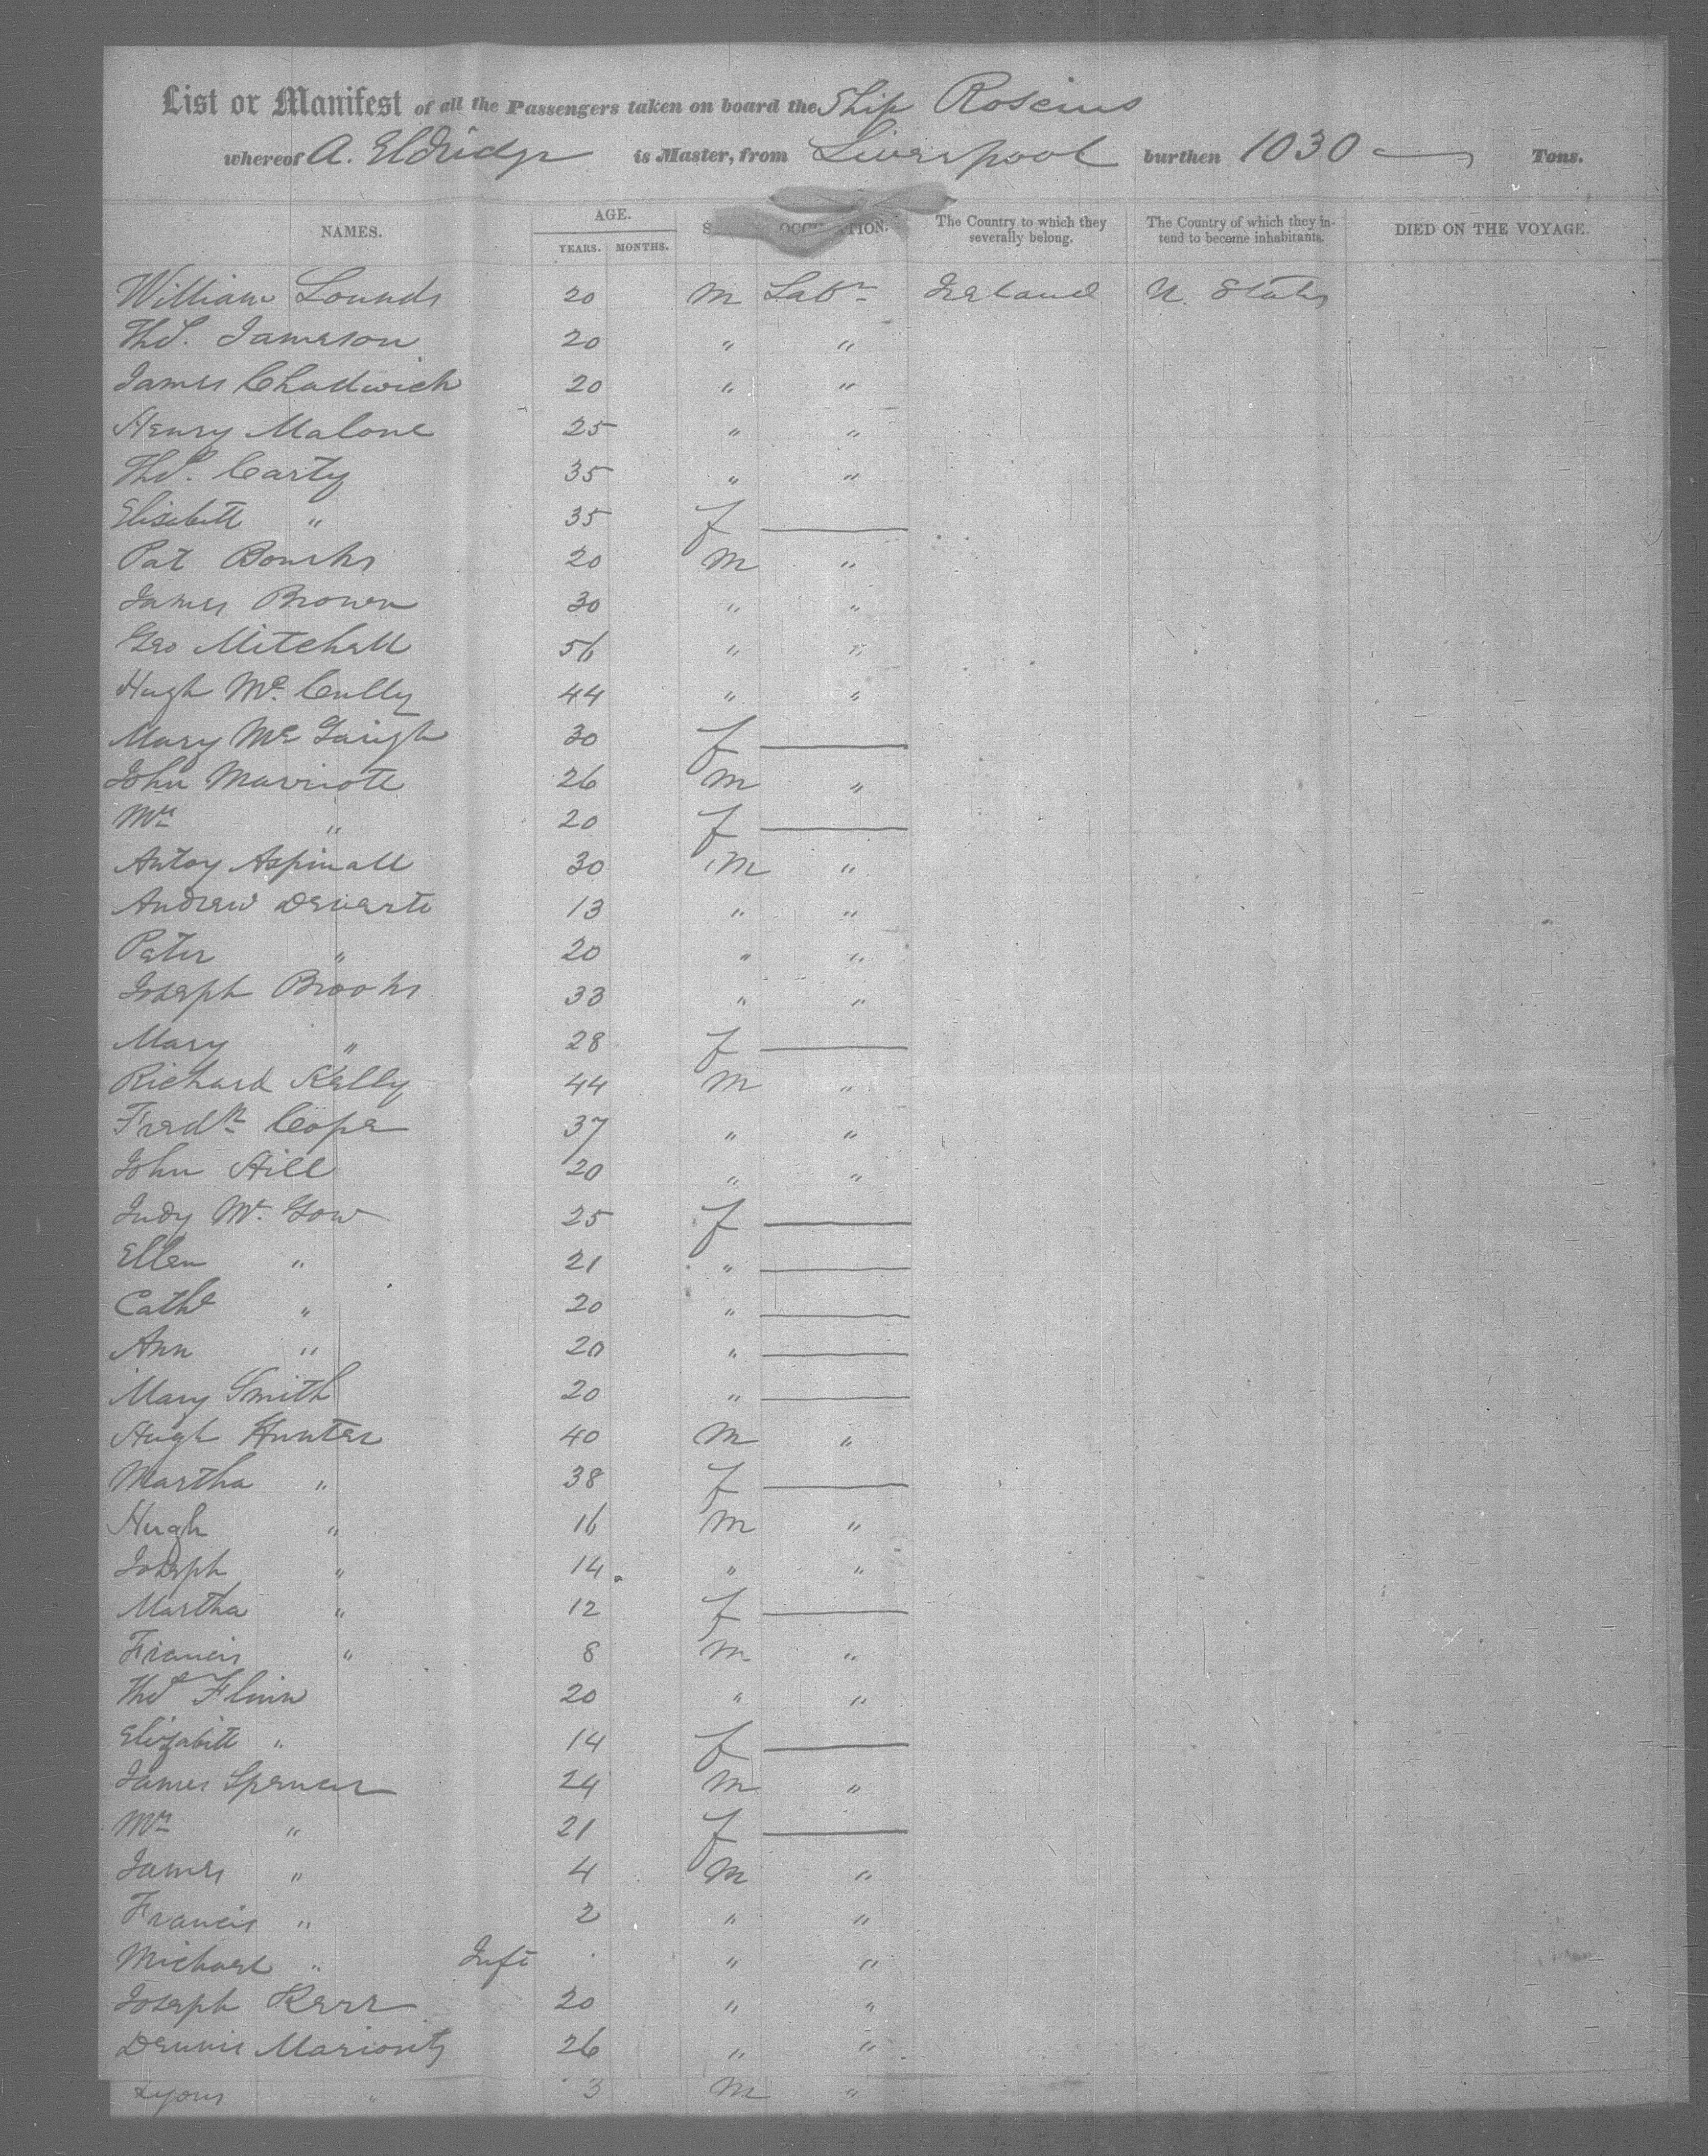 List or Manifest of all the Passengers taken on board the Ship Roscius
whereof A. Eldridge is Master, from Liverpool burthen 1030 Tons.
NAMES. AGE. YEARS. MONTHS. OCCUPATION. The Country to which they severally belong. The Country of which they intend to become inhabitants. DIED ON THE VOYAGE.
William Lounds 20 M Labr Ireland U. States
Thos. Jameson 20 " "
James Chadwick 20 " "
Henry Malone 25 " "
Thos. Carty 35 " "
Elisabeth " 35 f
Pat Bourks 20 M "
James Brown 30 " "
Geo Mitchell 56 " "
Hugh Mc. Cully 44 " "
Mary Mc Gaugh 30 f
John Marriott 26 M "
Mrs " 20 f
Antoy Aspinall 30 M "
Andrew 13 " "
Peter " 20 " "
Joseph Brooks 33 " "
Mary " 28 f
Richard Kelly 44 M "
Fredk Cope 37 " "
John Hill 20 " "
Judy Mc. Gow 25 f
Ellen " 21 "
Cathe " 20 "
Ann " 20 "
Mary Smith 20 "
Hugh Hunter 40 M "
Martha " 38 f
Hugh " 16 M "
Joseph " 14 " "
Martha " 12 f
Francis " 8 M "
Thos Flinn 20 " "
Elizabeth " 14 f
James Spencer 24 M "
Mrs " 21 f
James " 4 M "
Francis " 2 " "
Michael " Inft " "
Joseph Kerr 20 " "
Dennis 26 " "
Lyons " 3 M "